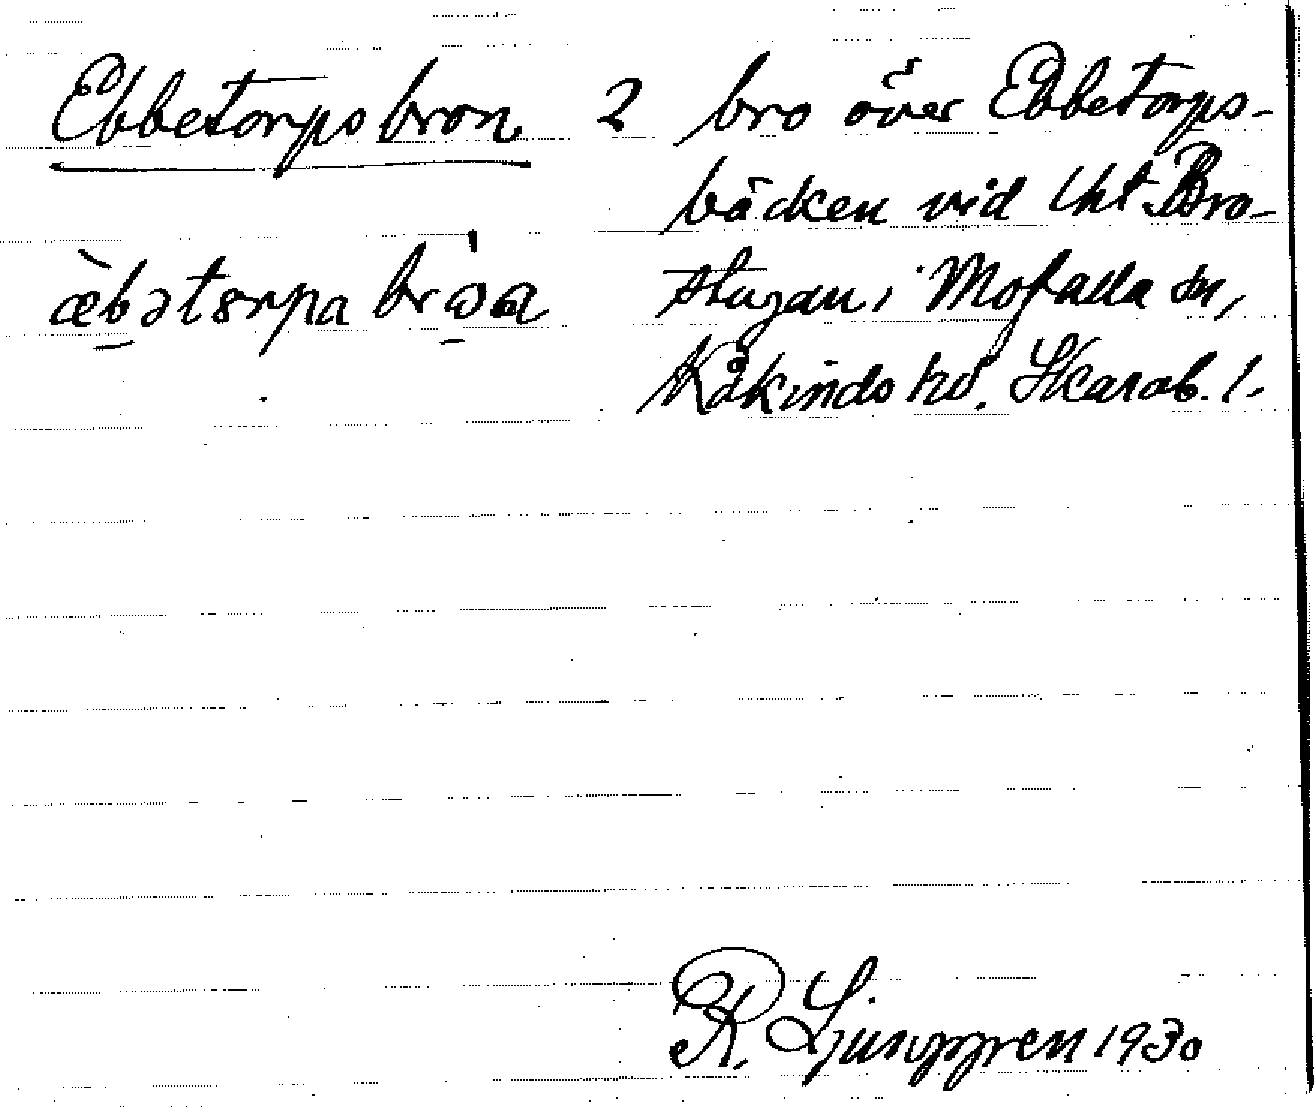 Ebbetorpsbron 2 bro över Ebbetorps-
bäcken vid lht Bro-
stugan i Mofalla sn,
Kåkinds hd. Skarab. l.
R. Ljunggren 1930